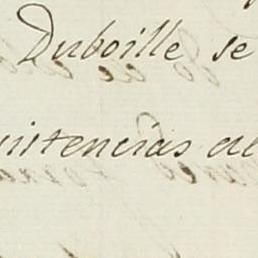 Duboille se
uistencias de